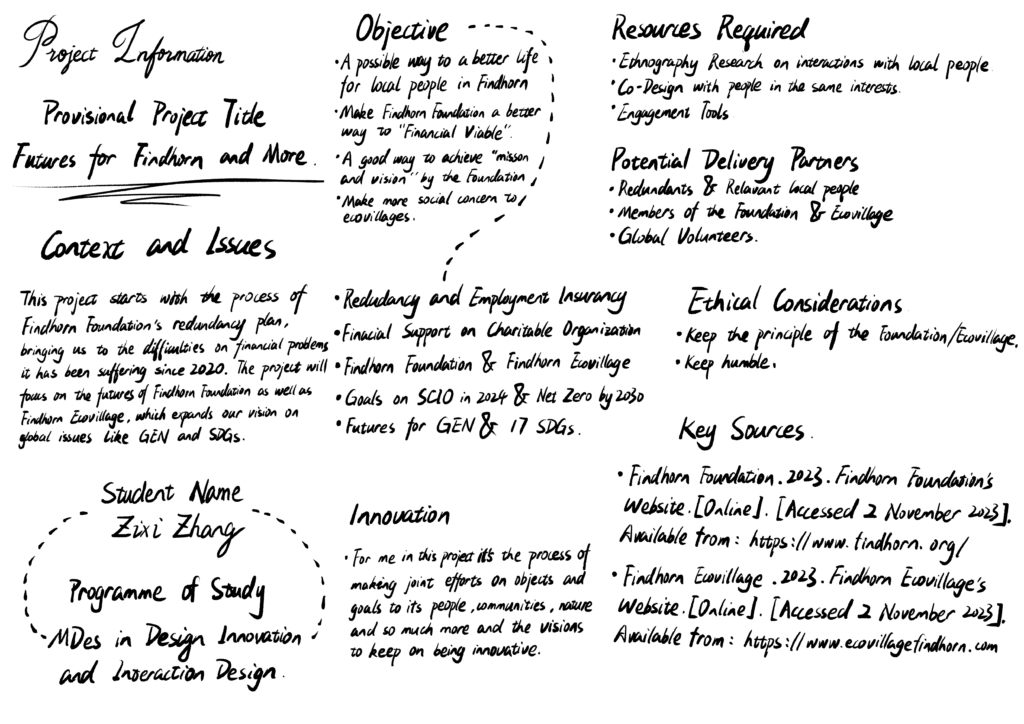 Project Information
Provisional Project Title
Futures for Findhorn and More.
Context and Issues
This project starts with the process of
Findhorn Foundation's redundancy plan,
bringing us to the difficulties on financial problems
it has been suffering since 2020. The project will
focus on the futures of Findhorn Foundation as well as
Findhorn Ecovillage, which expands our vision on
global issues like GEN and SDGs.
Student Name
Zixi Zhang
Programme of Study
MDes in Design Innovation
and Interaction Design.
Objective
• A possible way to a better life
for local people in Findhorn
• Make Findhorn Foundation a better
way to "Financial Viable".
• A good way to achieve "misson
and vision" by the Foundation
• Make more social concern to
ecovillages.
• Redudancy and Employment Insurancy
• Finacial Support on Charitable Organization
• Findhorn Foundation & Findhorn Ecovillage
• Goals on SCIO in 2024 & Net Zero by 2030
• Futures for GEN & 17 SDGs.
Innovation
• For me in this project it's the process of
making joint efforts on objects and
goals to its people, communities, nature
and so much more and the visions
to keep on being innovative.
Resources Required
• Ethnography Research on interactions with local people
• Co-Design with people in the same interests.
• Engagement Tools
Potential Delivery Partners
• Redundants & Relavant local people
• Members of the Foundation & Ecovillage
• Global Volunteers.
Ethical Considerations
• Keep the principle of the Foundation/Ecovillage.
• Keep humble.
Key Sources.
• Findhorn Foundation. 2023. Findhorn Foundation's
Website. [Online]. [Accessed 2 November 2023].
Available from: https://www.findhorn.org/
• Findhorn Ecovillage. 2023. Findhorn Ecovillage's
Website. [Online]. [Accessed 2 November 2023].
Available from: https://www.ecovillagefindhorn.com